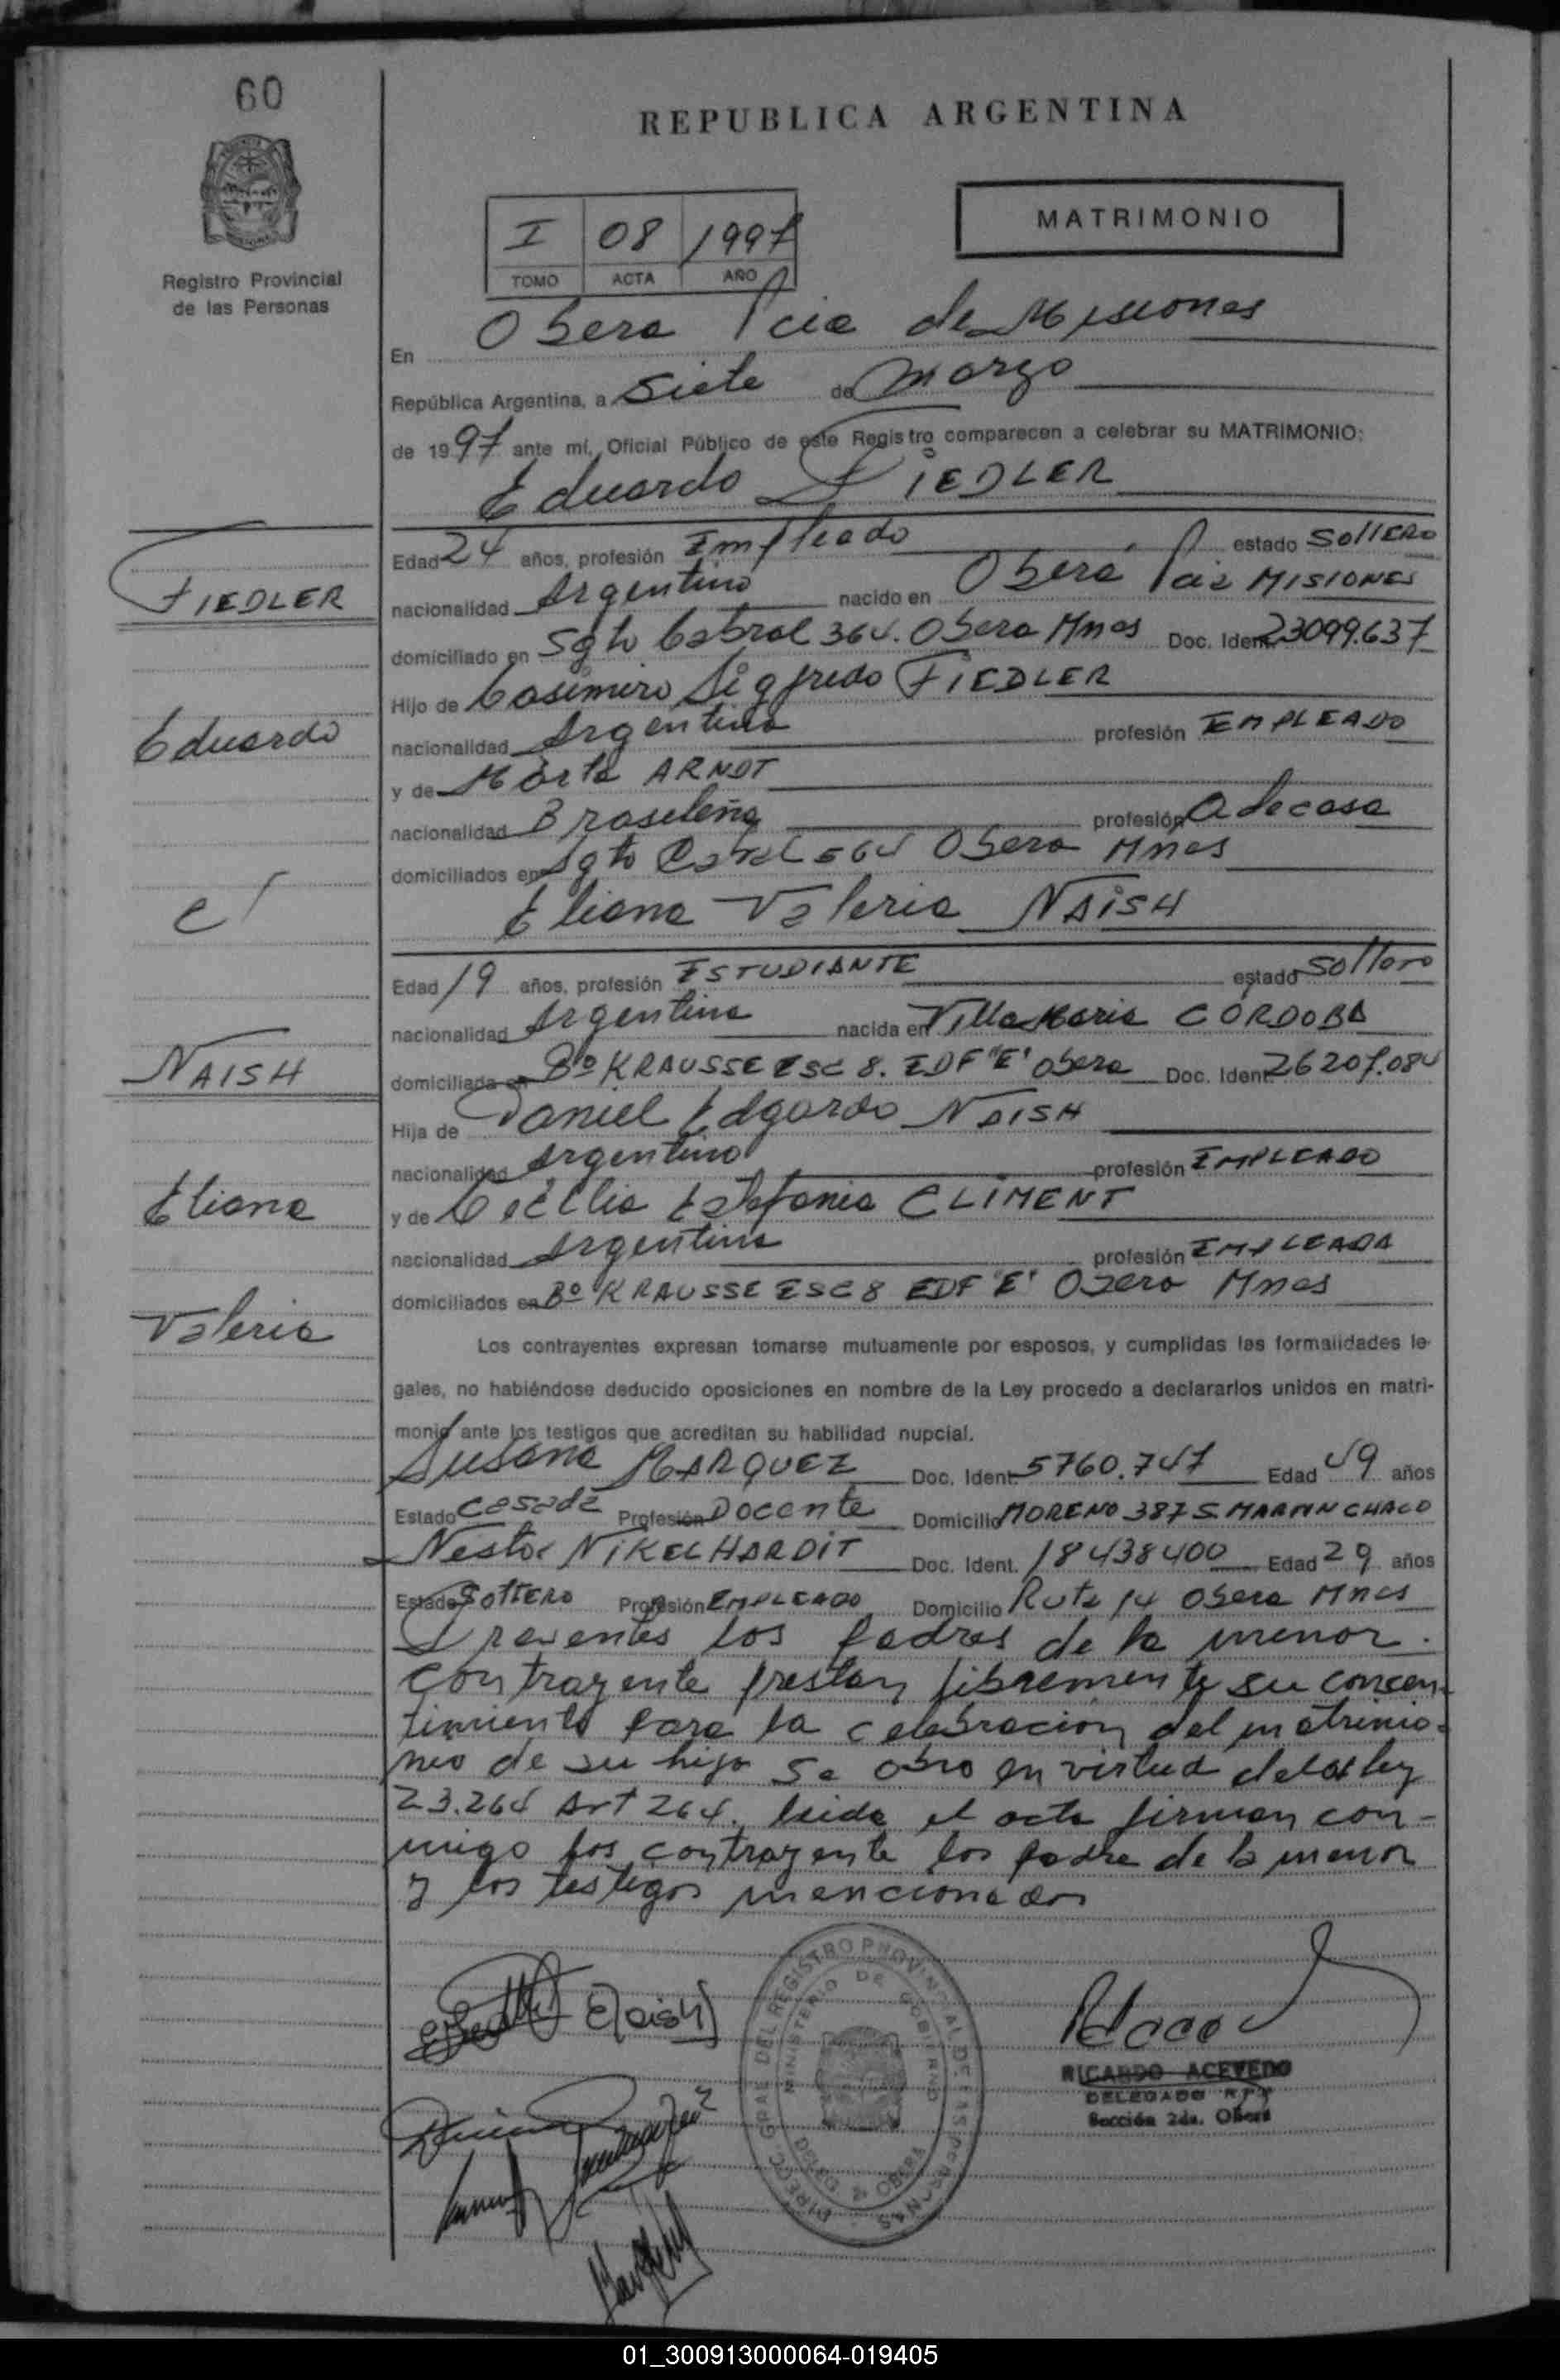 60
REPUBLICA ARGENTINA
Registro Provincial
de las Personas
I 08 1997
TOMO ACTA AÑO
MATRIMONIO
En Obera Pcia de Misiones
República Argentina, a Siete de Marzo
de 1997 ante mí, Oficial Público de este Registro comparecen a celebrar su MATRIMONIO:
Eduardo FIEDLER
Edad 24 años, profesión Empleado estado SOLTERO
nacionalidad Argentino nacido en Oberá Pcia MISIONES
domiciliado en Sgto Cabral 364. Obera Mnes Doc. Ident. 23099.637
Hijo de Casimiro Sigfredo FIEDLER
nacionalidad Argentina profesión EMPLEADO
y de Marta ARNDT
nacionalidad Brasileña profesión A de casa
domiciliados en Sgto Cabral 564 Obera Mnes
Eliana Valeria NAISH
Edad 19 años, profesión ESTUDIANTE estado Soltero
nacionalidad Argentina nacida en Villa Maria CÓRDOBA
domiciliada en Bº KRAUSSE ESC 8. EDF "E" Obera Doc. Ident. 26207.084
Hija de Daniel Edgardo NAISH
nacionalidad Argentino profesión EMPLEADO
y de Cecilia Estefania CLIMENT
nacionalidad Argentina profesión EMPLEADA
domiciliados en Bº KRAUSSE ESC 8 EDF "E" Obera Mnes
FIEDLER
Eduardo
c/
NAISH
Eliana
Valeria
Los contrayentes expresan tomarse mutuamente por esposos, y cumplidas las formalidades le-
gales, no habiéndose deducido oposiciones en nombre de la Ley procedo a declararlos unidos en matri-
monio ante los testigos que acreditan su habilidad nupcial.
Susana MARQUEZ Doc. Ident. 5760.747 Edad 49 años
Estado Casada Profesión Docente Domicilio MORENO 387 S. MARTIN CHACO
Nestor NIKELHARDIT Doc. Ident. 18438400 Edad 29 años
Estado SOLTERO Profesión EMPLEADO Domicilio Ruta 14 Obera Mnes
Presentes los padres de la menor.
contrayente prestan libremente su concen-
timiento para la celebracion del matrimo-
nio de su hija se obro en virtud de la ley
23.264 Art 264. leida el acta firman con-
migo los contrayente los padre de la menor
y los testigos mencionados
DIRECC. GRAL DEL REGISTRO PROVINCIAL DE LAS PERSONAS
MINISTERIO DE GOBIERNO
OBERA
RICARDO ACEVEDO
DELEGADO R.P.P
Sección 2da. Oberá
01_300913000064-019405